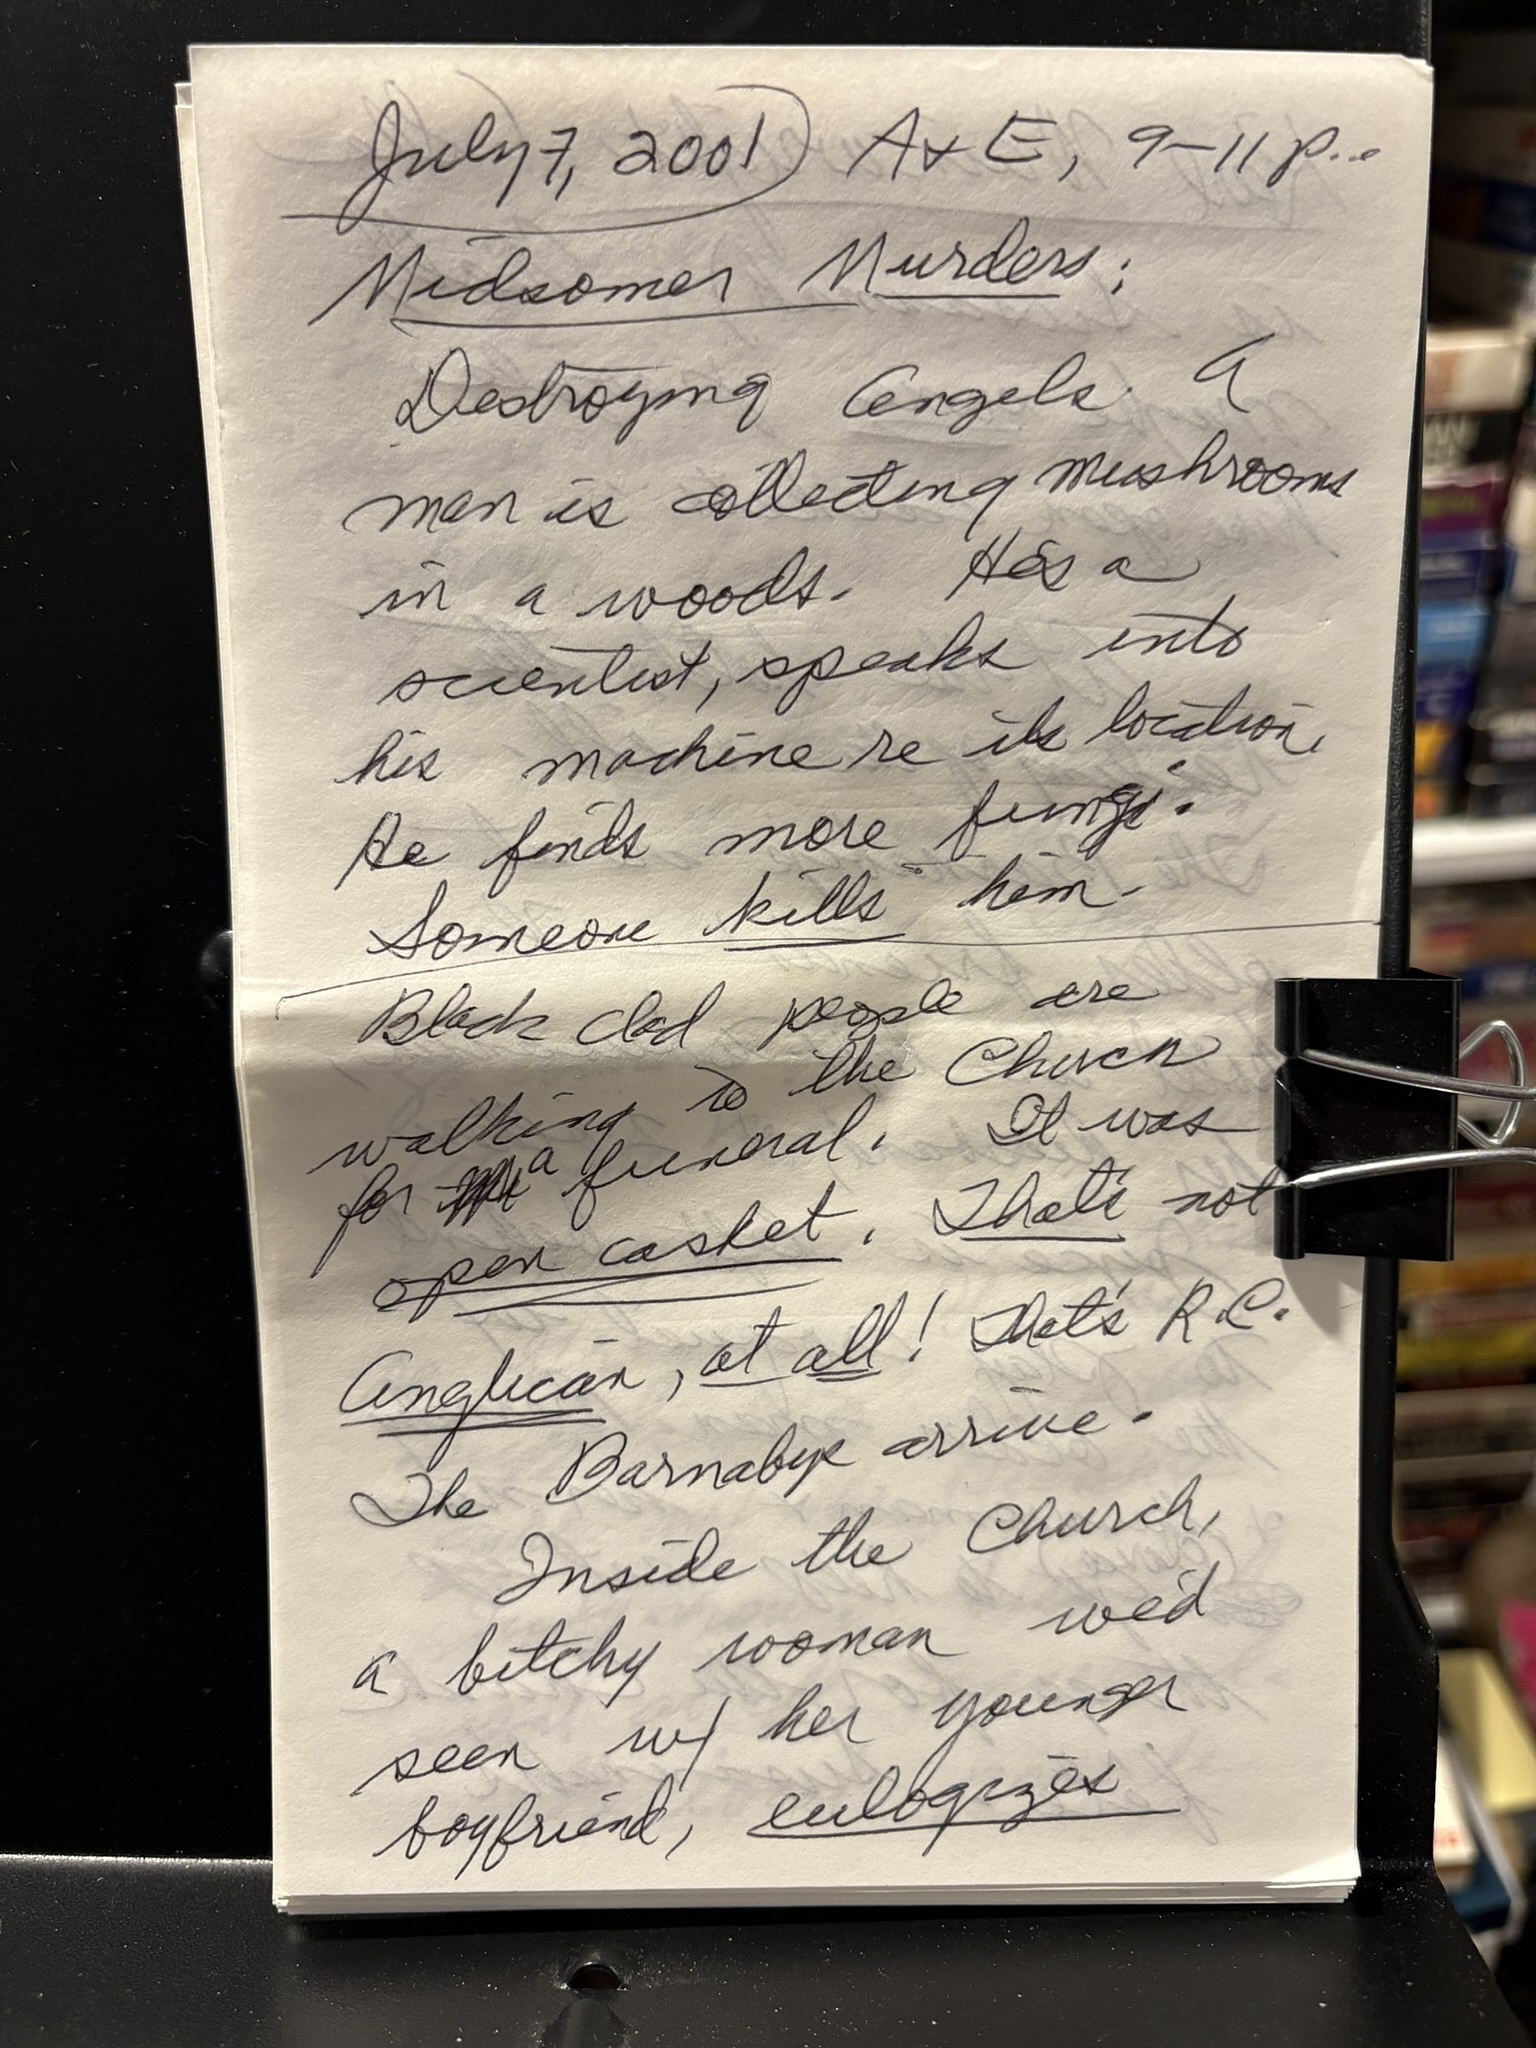 July 7, 2001) A & E, 9-11 p...
Midsomer Murders;
Destroying Angels. A
man is collecting mushrooms
in a woods. He's a
scientist, speaks into
his machine re its location.
He finds more fungi.
Someone kills him.
Black clad people are
walking to the Church
for a funeral. It was
open casket. That's not
Anglican, at all! That's R.C.
The Barnabys arrive.
Inside the Church,
a bitchy woman we'd
seen w/ her younger
boyfriend, eulogizes